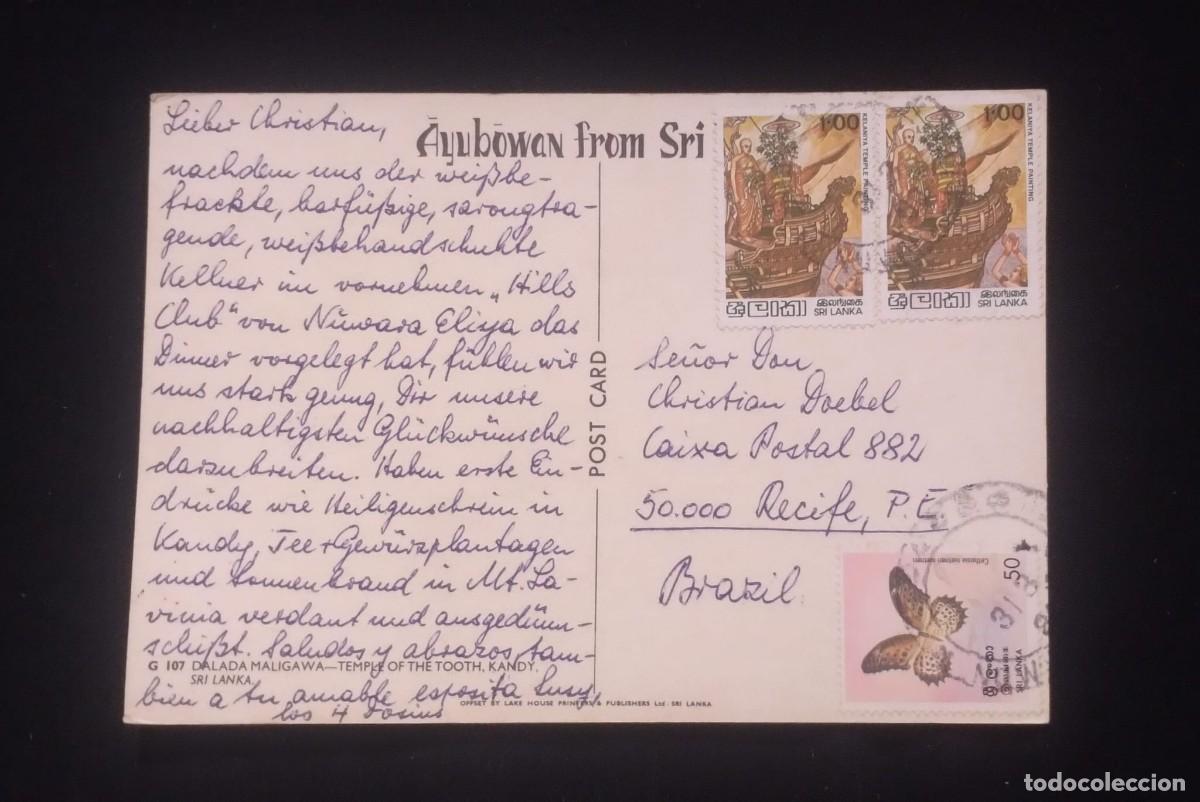 Āyubōwan from Sri
Lieber Christian,
nachdem uns der weißbe-
frackte, barfüßige, sarongtra-
gende, weißbehandschuhte
Kellner im vornehmen „Hills
Club“ von Nuwara Eliya das
Dinner vorgelegt hat, fühlen wir
uns stark genug, Dir unsere
nachhaltigsten Glückwünsche
darzubreiten. Haben erste Ein-
drücke wie Heiligenschrein in
Kandy, Tee + Gewürzplantagen
und Sonnenbrand in Mt. La-
vinia verdant und ausgedünn-
schißt. Saludos y abrazos tam-
bien a tu amable esposita Susy,
los 4
G 107 DALADA MALIGAWA—TEMPLE OF THE TOOTH, KANDY,
SRI LANKA.
OFFSET BY LAKE HOUSE PRINTERS & PUBLISHERS Ltd. SRI LANKA
POST CARD
1.00
KELANIYA TEMPLE PAINTING
ශ්‍රී ලංකා
இலங்கை
SRI LANKA
1.00
KELANIYA TEMPLE PAINTING
ශ්‍රී ලංකා
இலங்கை
SRI LANKA
Señor Don
Christian Doebel
Caixa Postal 882
50.000 Recife, P.E.
Brazil
50
ශ්‍රී ලංකා
இலங்கை
SRI LANKA
todocoleccion